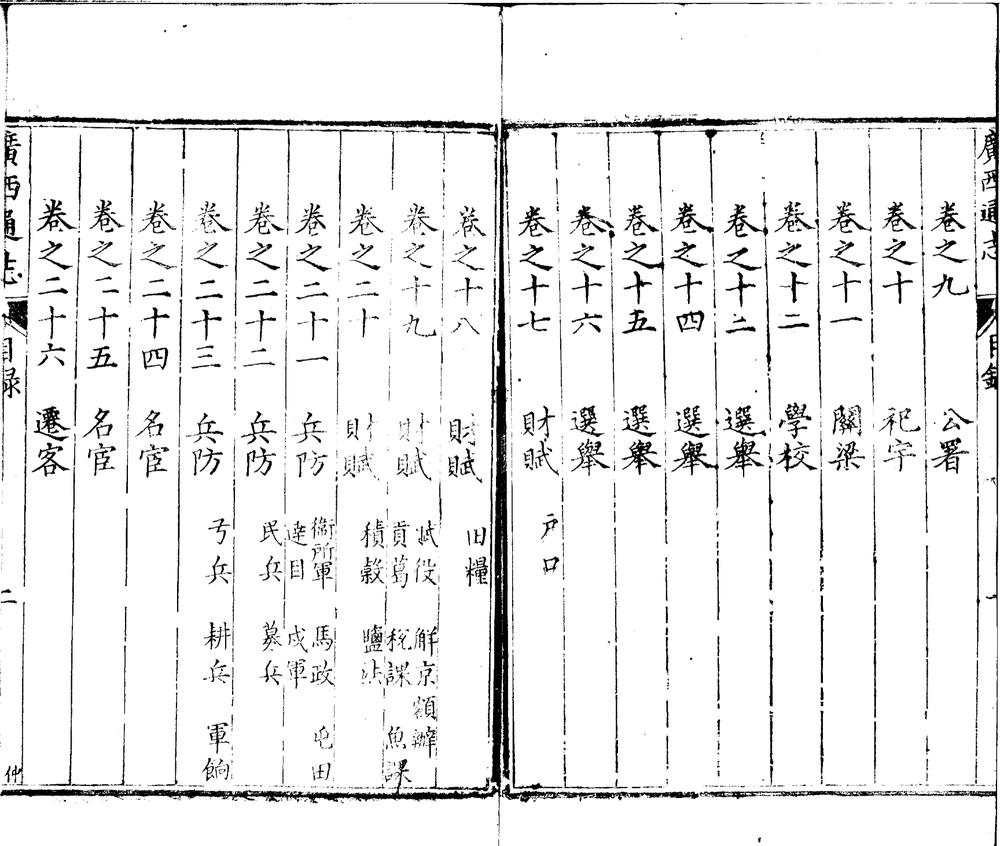 廣西通志 目錄 一
卷之九 公署
卷之十 祀宇
卷之十一 關梁
卷之十二 學校
卷之十三 選舉
卷之十四 選舉
卷之十五 選舉
卷之十六 選舉
卷之十七 財賦 戶口
卷之十八 財賦 田糧
卷之十九 財賦 賦役 解京額辦
貢葛 稅課 魚課
卷之二十 財賦 積穀 鹽法
卷之二十一 兵防 衞所軍 馬政 屯田
達目 戍軍
卷之二十二 兵防 民兵 募兵
卷之二十三 兵防 弓兵 耕兵 軍餉
卷之二十四 名宦
卷之二十五 名宦
卷之二十六 遷客
廣西通志 目録 二
仲